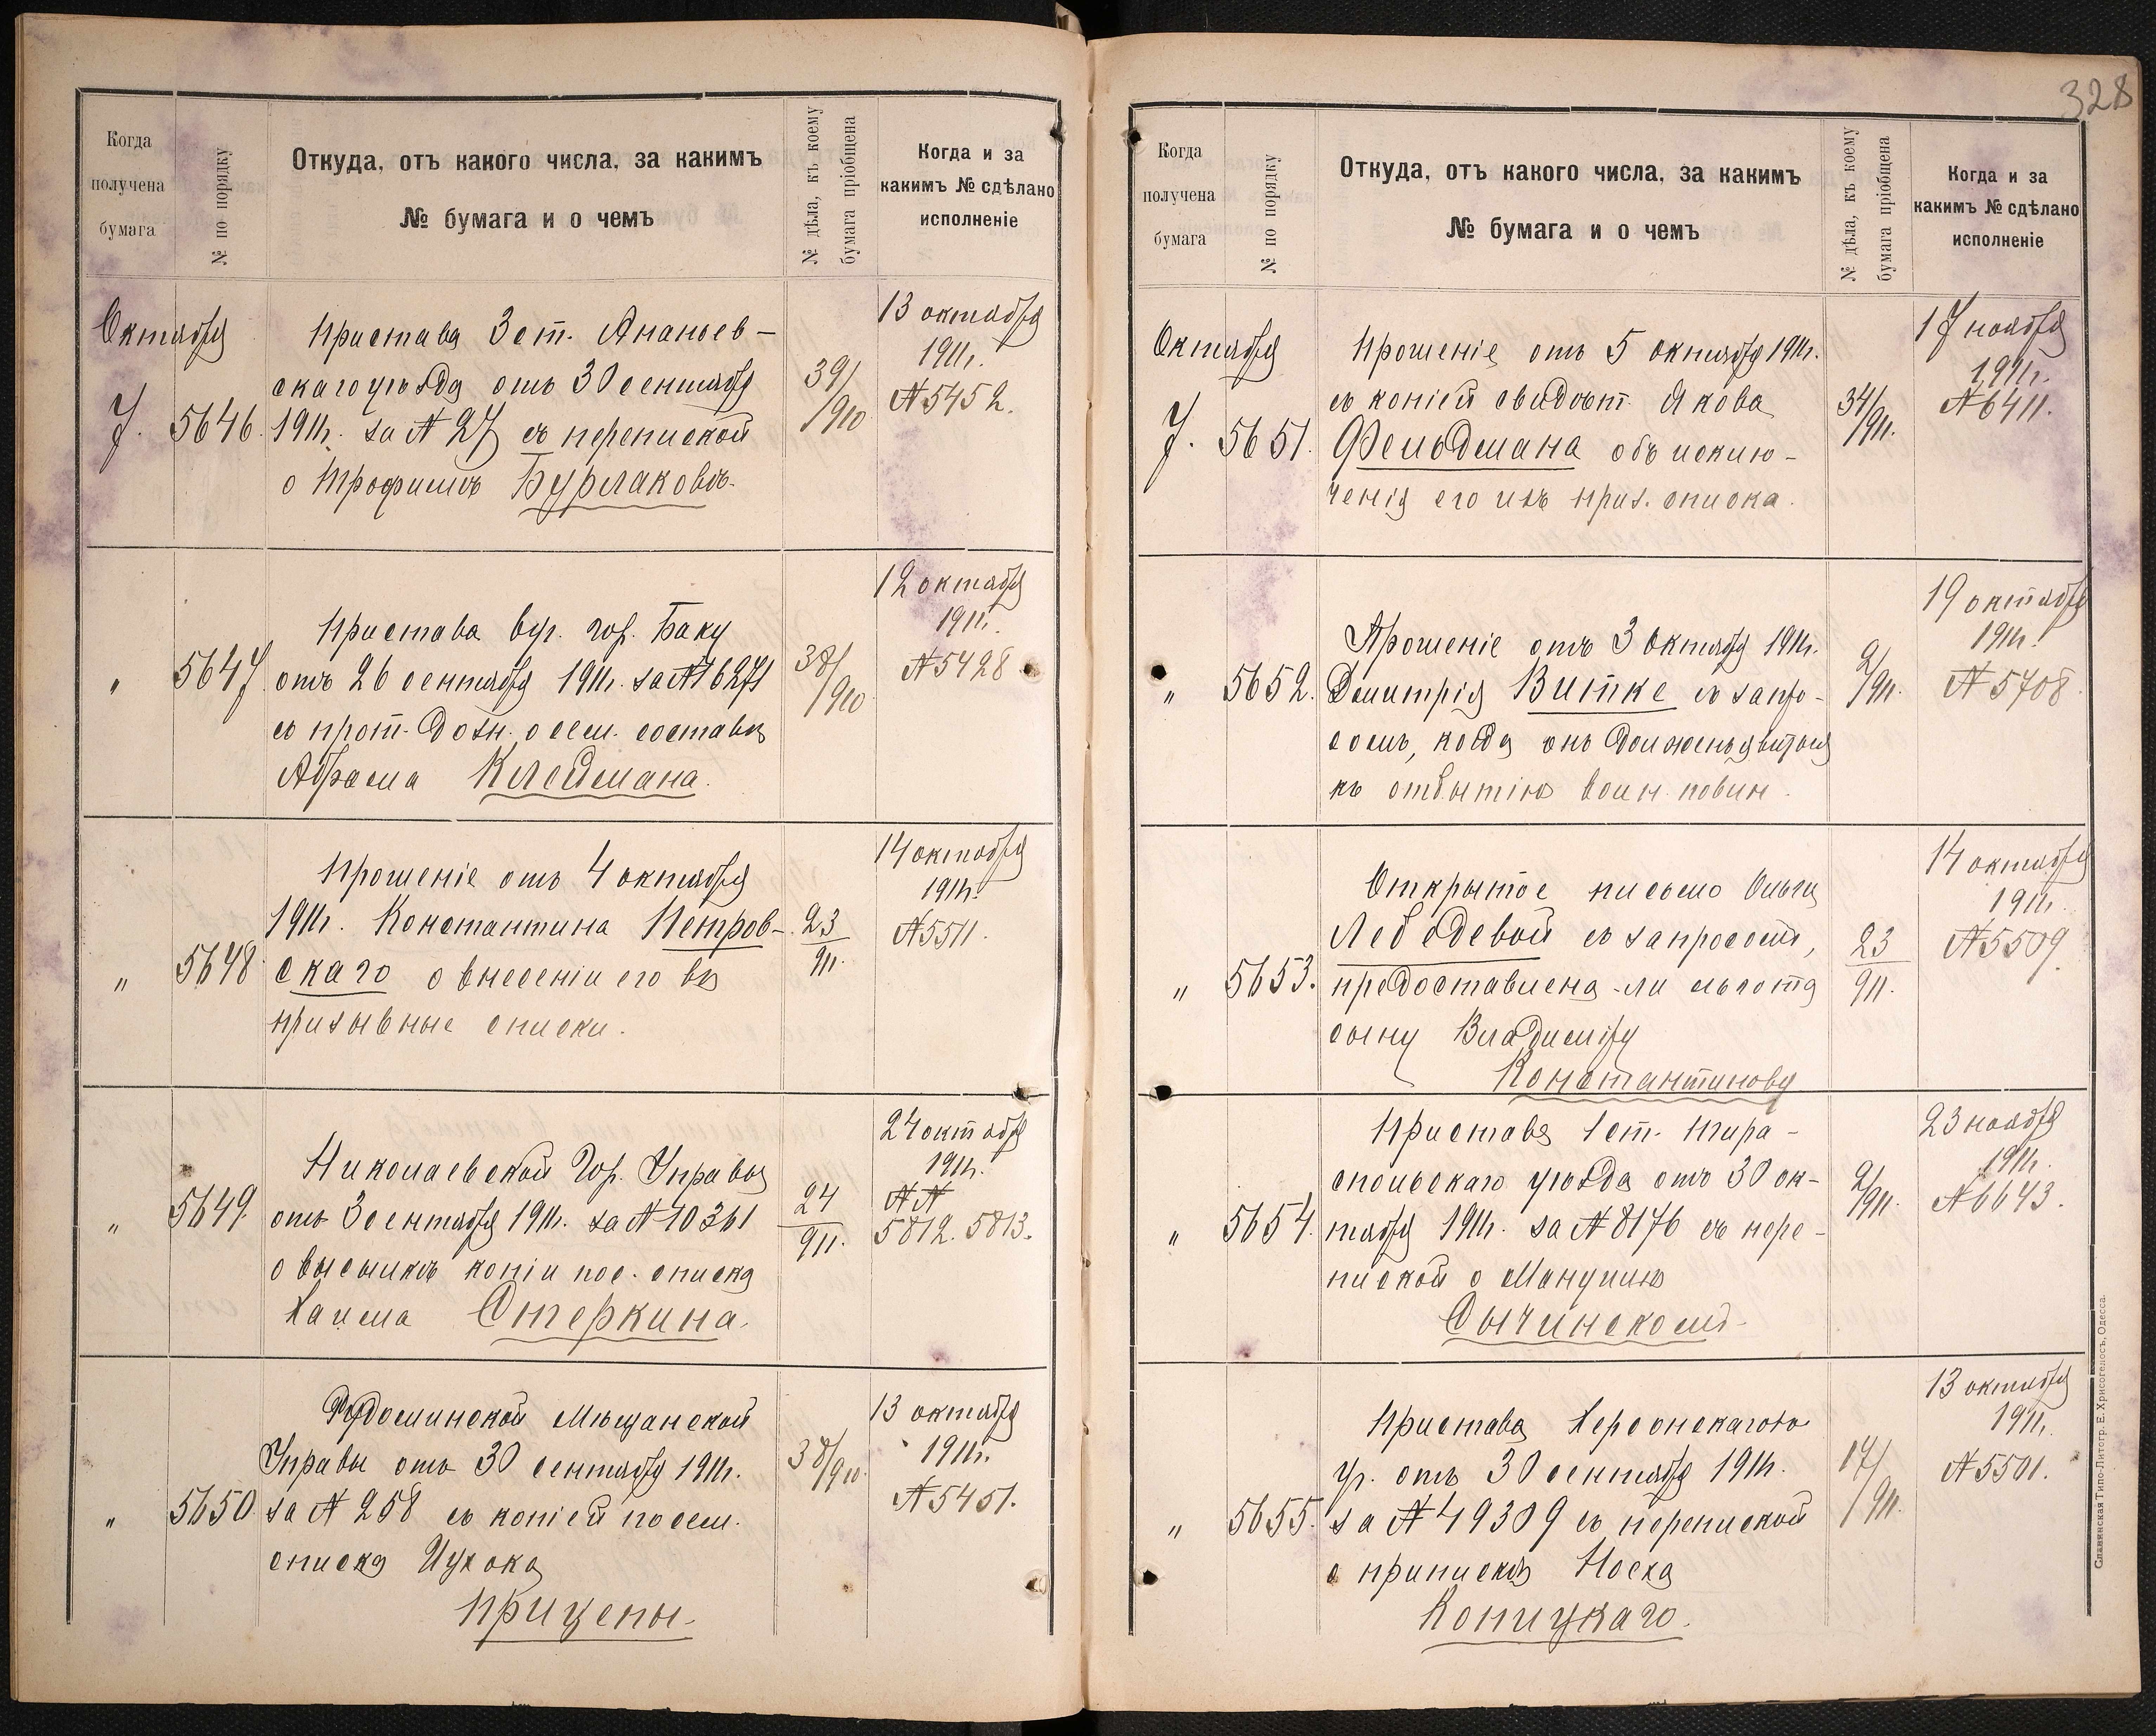 328
Когда
получена
бумага
№ по порядку
Откуда, отъ какого числа, за какимъ
№ бумага и о чемъ
№ дѣла, къ коему
бумага пріобщена
Когда и за
какимъ № сдѣлано
исполненіе
Октября
7.
5646.
Пристава 3 ст. Ананьев-
скаго уѣзда отъ 30 сентября
1911г. за № 27 съ перепиской
о Трофимѣ Бурлаковѣ.
39/
/910
13 октября
1911г.
№ 5452.
"
5647
Пристава гор. Баку
отъ 26 сентября 1911г. за № 16271
съ прот. дозн. о сем. составѣ
Абрама Клеймана.
38/
/910
12 октября
1911г.
№ 5428
"
5648
Прошеніе отъ 4 октября
1911г. Константина Петров-
скаго о внесеніи его въ
призывные списки.
23
911.
14 октября
1911г.
№ 5511.
"
5649.
Николаевской Гор. Управы
отъ 3 сентября 1911г. за № 10361
о высылкѣ копіи пос. списка
Хаима Стеркина.
24
911.
24 октября
1911г.
№ №
5812. 5813.
"
5650
Мѣщанской
Управы отъ 30 сентября 1911г.
за № 258 съ копіей посем.
списка Ицхока
Прицепы.
38/910.
13 октября
1911г.
№ 5451.
Когда
получена
бумага
№ по порядку
Откуда, отъ какого числа, за какимъ
№ бумага и о чемъ
№ дѣла, къ коему
бумага пріобщена
Когда и за
какимъ № сдѣлано
исполненіе
Октября
7.
5651.
Прошеніе отъ 5 октября 1911г.
съ копіей свидѣт. Якова
Фельдмана объ исклю-
ченія его изъ приз. списка.
34/911.
17 ноября
1911г.
№ 6411.
"
5652.
Прошеніе отъ 3 Октября 1911г.
Дмитрія Витке съ запро-
сомъ, когда онъ долженъ явиться
къ отбытію воин. повин.
2/911.
19 октября
1911г.
№ 5708.
"
5653.
Открытое письмо Ольги
Лебедевой съ запросомъ,
предоставлена-ли льгота
сыну Владиміру
Константинову
23
911.
14 октября
1911г.
№ 5509.
"
5654.
Пристава 1 ст. Тира-
спольскаго уѣзда отъ 30 ок-
тября 1911г. за № 8176 съ пере-
пиской о Мануилѣ
Сычинскомъ.
2/911.
23 ноября
1911г.
№ 6643.
"
5655.
Пристава Херсонскаго
уч. отъ 30 сентября 1911г.
за № 49309 съ перепиской
о припискѣ Носка
Копицкаго.
17/
/911.
13 октября
1911г.
№ 5501.
Славянская Типо-Литогр. Е. Хрисогелосъ, Одесса.